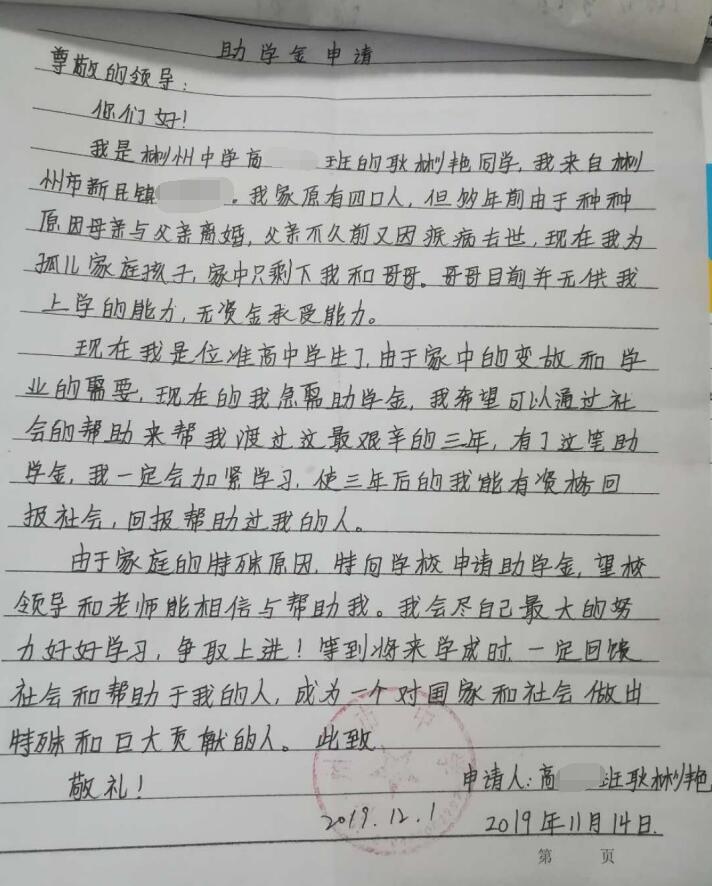 助学金申请
尊敬的领导:
你们好!
我是彬州中学高 班的耿彬艳同学,我来自彬
州市新民镇 。我家原有四口人,但幼年前由于种种
原因母亲与父亲离婚,父亲不久前又因疾病去世,现在我为
孤儿家庭孩子,家中只剩下我和哥哥。哥哥目前并无供我
上学的能力,无资金承受能力。
现在我是位准高中学生了,由于家中的变故和学
业的需要,现在的我急需助学金,我希望可以通过社
会的帮助来帮我渡过这最艰辛的三年,有了这笔助
学金,我一定会加紧学习,使三年后的我能有资格回
报社会,回报帮助过我的人。
由于家庭的特殊原因,特向学校申请助学金,望校
领导和老师能相信与帮助我。我会尽自己最大的努
力好好学习,争取上进!等到将来学成时,一定回馈
社会和帮助于我的人,成为一个对国家和社会做出
特殊和巨大贡献的人。此致
敬礼!
申请人:高 班耿彬艳
2019.12.1
2019年11月14日.
第 页